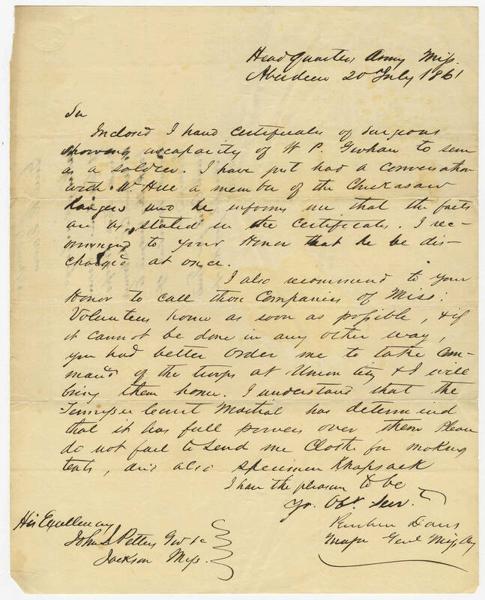 Head Quarters Army Miss.
Aberdeen 20 July 1861
Sir
Inclosed I hand certificates of surgeons
showing incapacity of W P. to serve
as a soldier. I have just had a conversation
with Mr a member of the Chickasaw
Rangers and he informs me that the facts
are as stated in the certificates. I rec-
ommend to your Honor that he be dis-
charged at once.
I also recommend to your
Honor to call those Companies of Miss:
Volunteers home as soon as possible, & if
it cannot be done in any other way,
you had better order me to take com-
mand of the troops at Union City & I will
bring them home. I understand that the
Tennessee Court Martial has determined
that it has full powers over them Please
do not fail to send me Cloth for making
tents, and also specimen Knapsack
I have the pleasure to be
Yr. Obt Serv.
Reuben Davis
Major Genl Miss Ay
His Excellency
John J Pettus Gov &c
Jackson Miss.